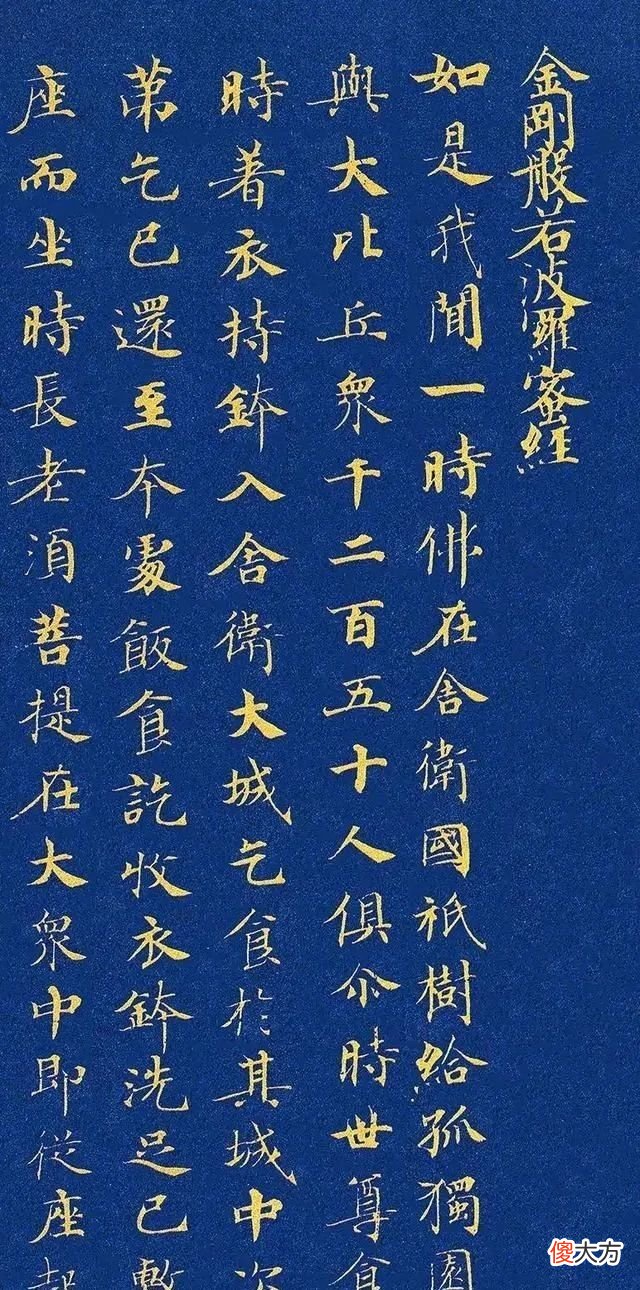 金剛般若波羅蜜經
如是我聞一時佛在舍衛國祇樹給孤獨園
與大比丘眾千二百五十人俱尒時世尊食
時着衣持鉢入舍衛大城乞食於其城中次
苐乞已還至本處飯食訖收衣鉢洗足已敷
座而坐時長老須菩提在大眾中即從座起
傻大方